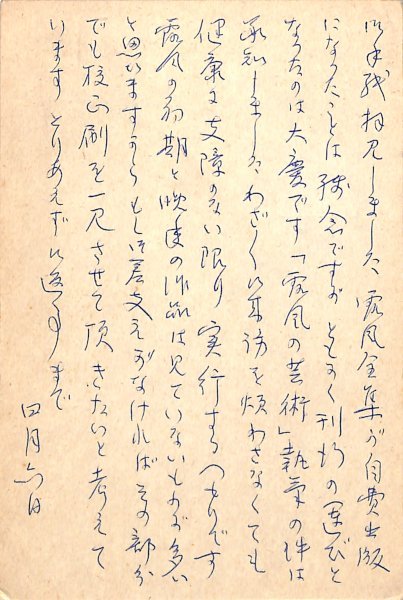 お手紙拝見しました 露風全集が自費出版
になったことは残念ですが ともかく刊行の運びと
なったのは大慶です「露風の芸術」執筆の件は
承知しました わざ〱御来訪を煩わさなくても
健康に支障のない限り 実行するつもりです
露風の初期と晩年の作品は見ていないものが多い
と思いますから もし御差支えがなければその部分
でも校正刷を一見させて頂きたいと考えて
います とりあえず御返事まで
四月六日